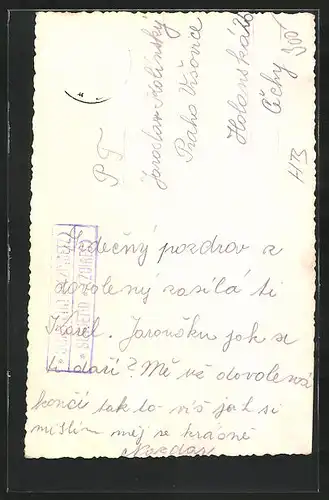 P T
Jaroslav Kolínský
Praha Vršovice
Holanská 26
Čéchy
300
HB
Srdečný pozdrav z
dovolený zasílá ti
Karel. Jaroušku jak se
ti daří? Mě už dovolená
končí tak to víš jak si
myslím měj se krásně
Nazdar